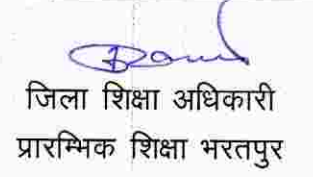 जिला शिक्षा अधिकारी
प्रारम्भिक शिक्षा भरतपुर